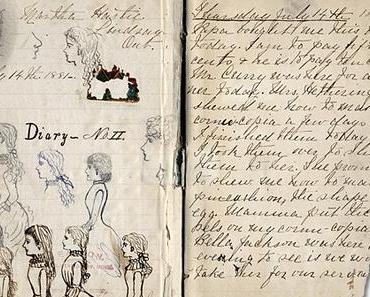 Martha Hartie
Lindsay
Ont.
July 14th 1881
Diary — No II.
Thursday July 14th
Papa bought me this
today. I am to pay
cents, & he is to pay
Mr Curry was here for
her today. Mrs Hetherin
showed me how to ma
cornucopia a few days
I finished them today
I took them over to
them to her. She prom
to show me how to ma
pincushion, the shape
egg. Mamma put the
sels on my cornu-copia
Bella Jackson was here
evening to see is we wo
take her for our ser